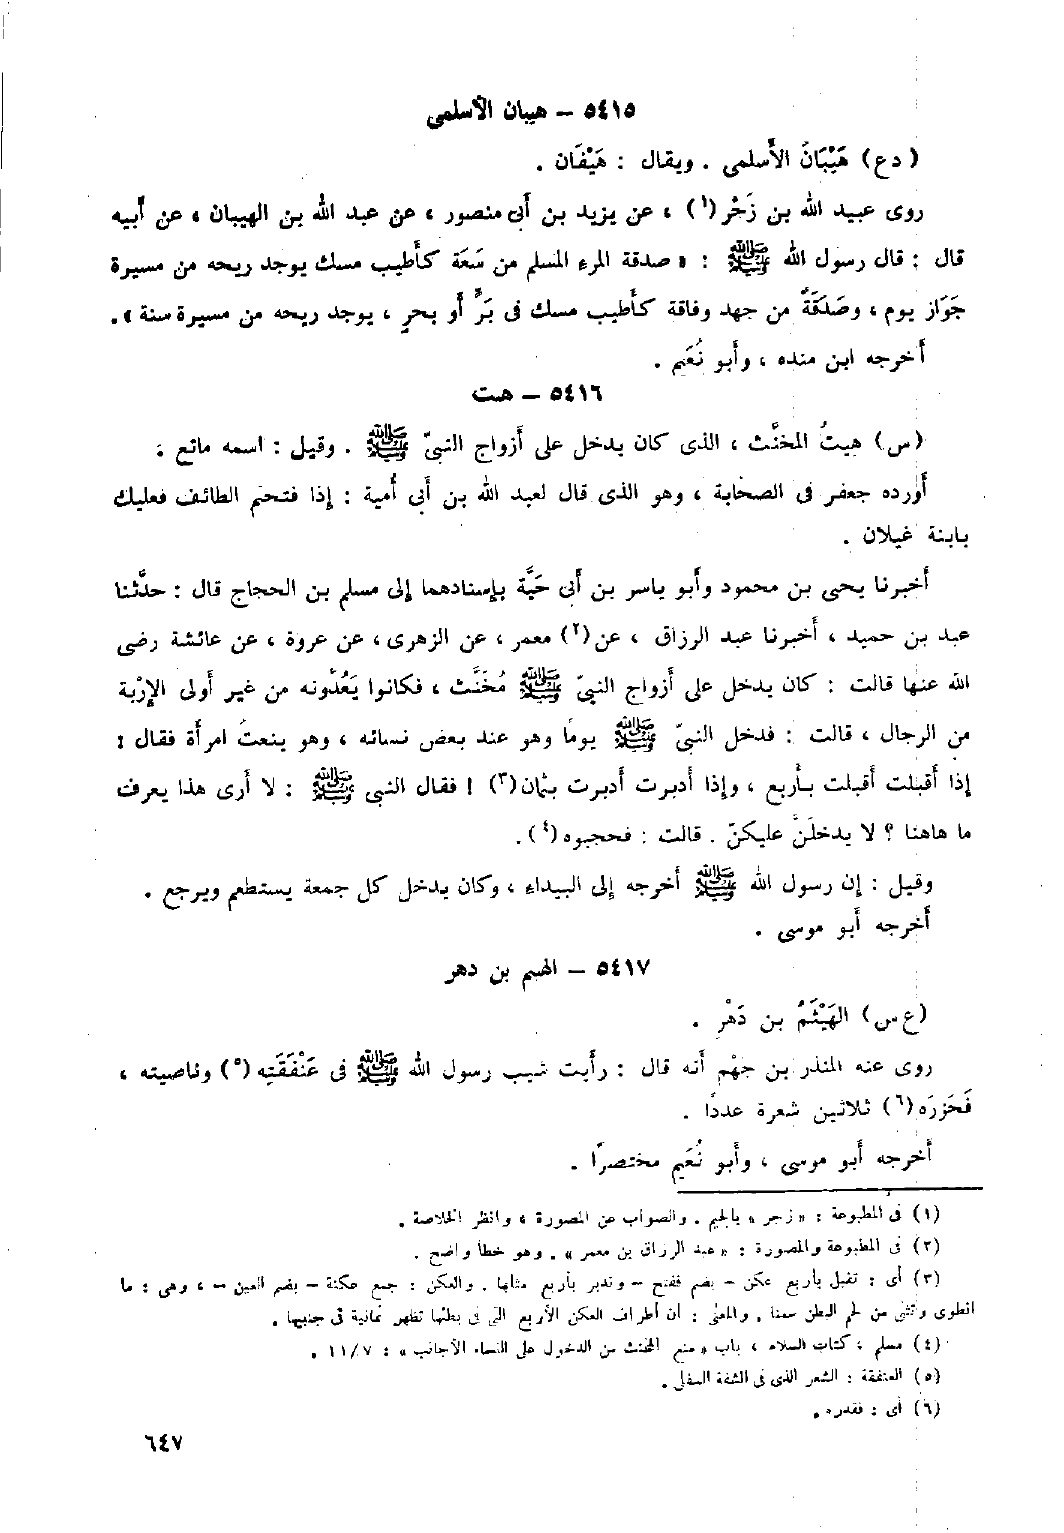 ٥٤١٥ – هيبان الأسلمى
( دع ) هَيْبَانَ الأَسلمى . ويقال : هَيْفَان .
روى عبيد الله بن زَحْر(١) ، عن يزيد بن أَبى منصور ، عن عبد الله بن الهيبان ، عن أَبيه
قال : قال رسول الله ﷺ : « صدقة المرء المسلم من سَعَة كأَطيب مسك يوجد ريحه من مسيرة
جَوَاز يوم ، وصَدَقَةٌ من جهد وفاقة كأَطيب مسك فى بَرٍّ أَو بحرٍ ، يوجد ريحه من مسيرة سنة » .
أَخرجه ابن منده ، وأَبو نُعَيم .
٥٤١٦ – هيت
(س) هِيتُ المخنَّث ، الذى كان يدخل على أَزواج النبىّ ﷺ . وقيل : اسمه ماتع :
أَورده جعفر فى الصحابة ، وهو الذى قال لعبد الله بن أَبى أُمية : إِذا فتحتم الطائف فعليك
بابنة غيلان .
أَخبرنا يحيى بن محمود وأَبو ياسر بن أَبى حَيَّة بإِسنادهما إِلى مسلم بن الحجاج قال : حدَّثنا
عبد بن حميد ، أَخبرنا عبد الرزاق ، عن(٢) معمر ، عن الزهرى ، عن عروة ، عن عائشة رضى
الله عنها قالت : كان يدخل على أَزواج النبىّ ﷺ مُخَنَّث ، فكانوا يَعُدُّونه من غير أُولى الإِرْبة
من الرجال ، قالت : فدخل النبىّ ﷺ يومًا وهو عند بعض نسائه ، وهو ينعتُ امرأَة فقال :
إِذا أَقبلت أَقبلت بأَربع ، وإِذا أَدبرت أَدبرت بثمان(٣) ! فقال النبى ﷺ : لا أَرى هذا يعرف
ما هاهنا ؟ لا يدخلَنَّ عليكنّ . قالت : فحجبوه(٤) .
وقيل : إِن رسول الله ﷺ أَخرجه إِلى البيداء ، وكان يدخل كل جمعة يستطعم ويرجع .
أَخرجه أَبو موسى .
٥٤١٧ – الهيثم بن دهر
(ع س) الهَيْثَمُ بن دَهْر .
روى عنه المنذر بن جهْم أَنه قال : رأَيت شيب رسول الله ﷺ فى عَنْفَقَتِه (٥) وناصيته ،
فَحَزَرَه(٦) ثلاثين شعرة عددًا .
أَخرجه أَبو موسى ، وأَبو نُعَيم مختصرًا .
(١) فى المطبوعة : « زجر » بالجيم . والصواب عن المصورة ، وانظر الخلاصة .
(٢) فى المطبوعة والمصورة : « عبد الرزاق بن معمر » . وهو خطأ واضح .
(٣) أى : تقبل بأربع عكن – بضم ففتح – وتدبر بأربع مثلها . والعكن : جمع عكنة – بضم العين – ، وهى : ما
انطوى وتثنى من لحم البطن سمنا . والمعنى : أن أطراف العكن الأربع التى فى بطنها تظهر ثمانية فى جنبيها .
(٤) مسلم ، كتاب السلام ، باب « منع المخنث من الدخول على النساء الأجانب » : ٧/١١ .
(٥) العنفقة : الشعر الذى فى الشفة السفلى .
(٦) أى : فقدره .
٦٤٧